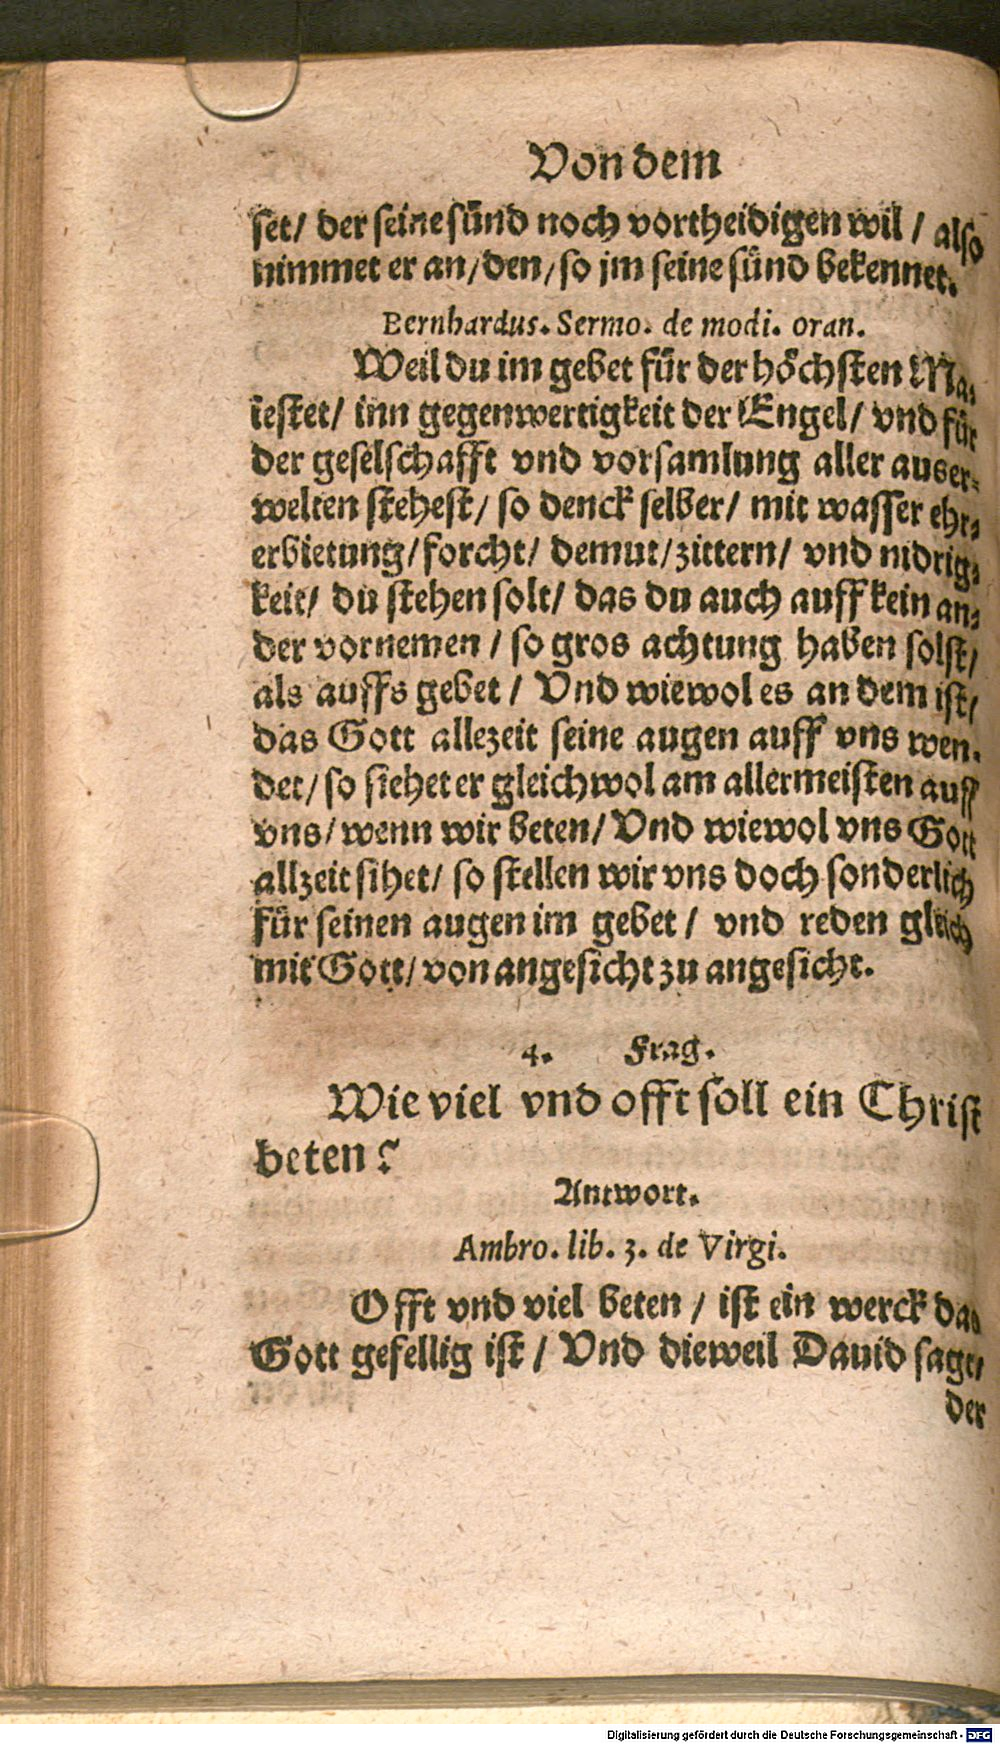 Von dem
set/ der seine sünd noch vortheidigen wil / also
nimmet er an/den/so jm seine sünd bekennet.
Bernhardus. Sermo. de modi. oran.
Weil du im gebet für der höchsten Ma⸗
iestet/ inn gegenwertigkeit der Engel/ vnd für
der geselschafft vnd vorsamlung aller auser⸗
welten stehest/ so denck selber/ mit wasser ehr⸗
erbietung/forcht/ demut/zittern/ vnd nidrig⸗
keit/ du stehen solt/ das du auch auff kein an⸗
der vornemen / so gros achtung haben solst/
als auffs gebet / Vnd wiewol es an dem ist/
das Gott allezeit seine augen auff vns wen⸗
det/ so siehet er gleichwol am allermeisten auff
vns/ wenn wir beten/ Vnd wiewol vns Gott
allzeit sihet/ so stellen wir vns doch sonderlich
für seinen augen im gebet / vnd reden gleich
mit Gott/ von angesicht zu angesicht.
4. Frag.
Wie viel vnd offt soll ein Christ
beten?
Antwort.
Ambro. lib. 3. de Virgi.
Offt vnd viel beten / ist ein werck das
Gott gefellig ist / Vnd dieweil Dauid saget/
der
Digitalisierung gefördert durch die Deutsche Forschungsgemeinschaft - DFG